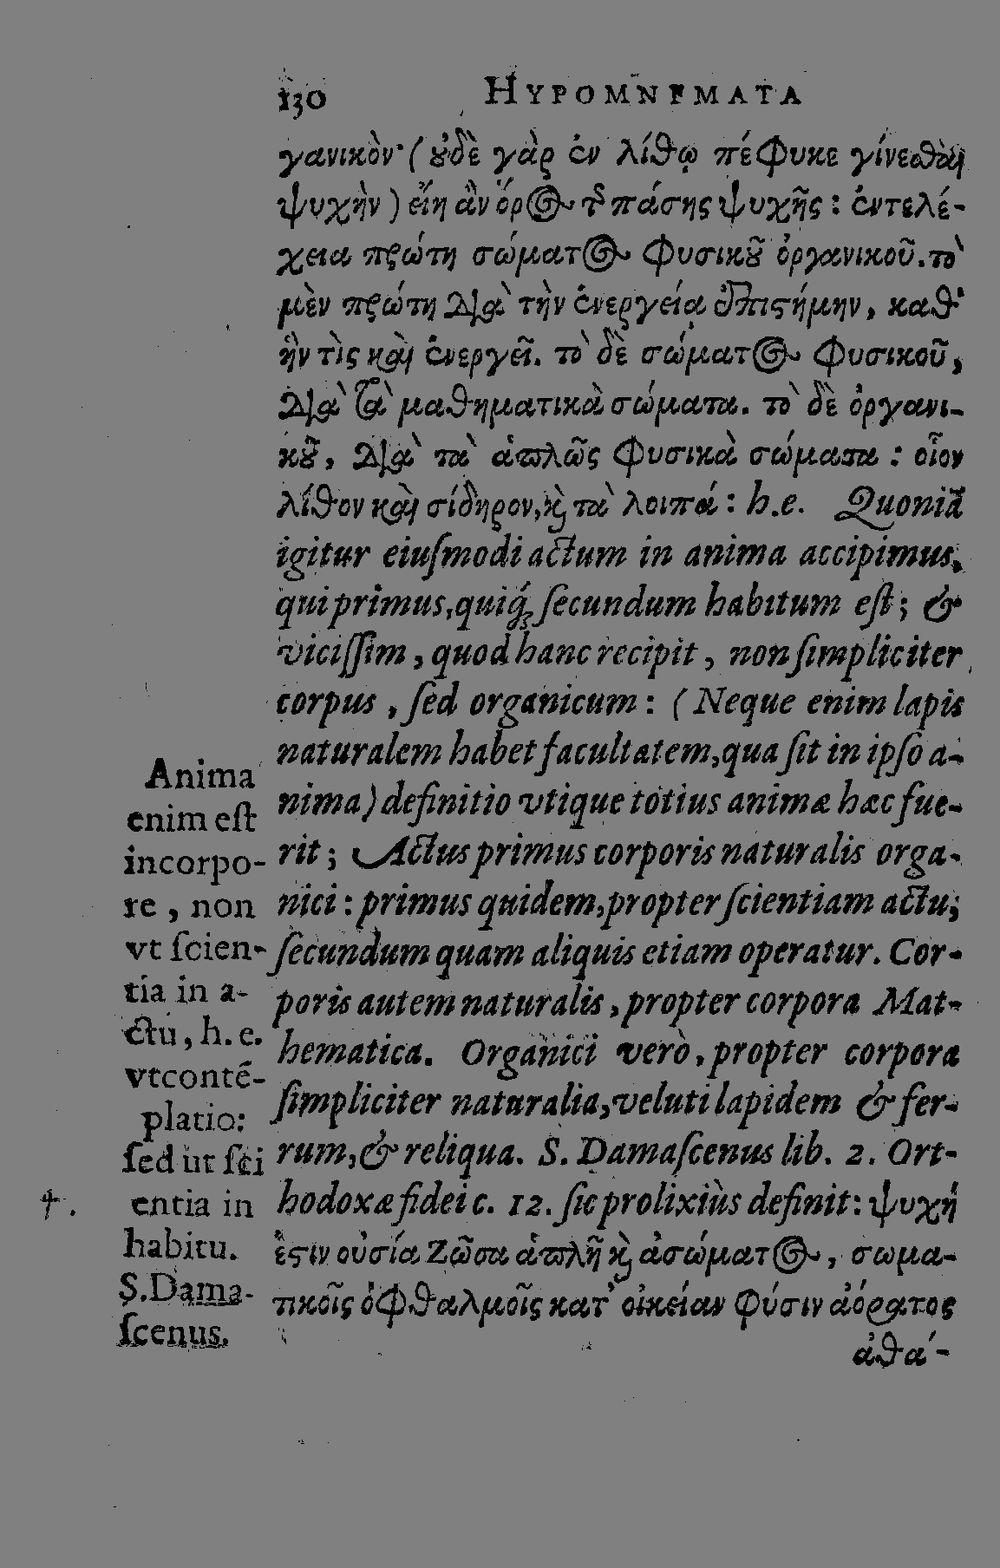 130 HYPOMNEMATA
γανικὸν· (οὐδὲ γὰρ ἐν λίθῳ πέφυκε γίνεσθαι
ψυχὴν) εἴη ἂν ὅρος τῆς πάσης ψυχῆς: ἐντελέ-
χεια πρώτη σώματος φυσικοῦ ὀργανικοῦ. τὸ
μὲν πρώτη διὰ τὴν ἐνεργείᾳ ἐπιστήμην, καθ'
ἥν τὶς καὶ ἐνεργεῖ. τὸ δὲ σώματος φυσικοῦ,
διὰ τὰ μαθηματικὰ σώματα. τὸ δὲ ὀργανι-
κοῦ, διὰ τὰ ἁπλῶς φυσικὰ σώματα: οἷον
λίθον καὶ σίδηρον, καὶ τὰ λοιπά: h.e. Quoniã
igitur eiuſmodi actum in anima accipimus,
qui primus, quiq́; ſecundum habitum eſt; &
viciſſim, quod hanc recipit, non ſimpliciter
corpus, ſed organicum: (Neque enim lapis
naturalem habet facultatem, qua ſit in ipſo a-
nima) definitio vtique totius animæ hæc fue-
rit; Actus primus corporis naturalis orga-
nici: primus quidem, propter ſcientiam actu;
ſecundum quam aliquis etiam operatur. Cor-
poris autem naturalis, propter corpora Mat-
hematica. Organici verò, propter corpora
ſimpliciter naturalia, veluti lapidem & fer-
rum, & reliqua. S. Damaſcenus lib. 2. Ort-
hodoxæ fidei c. 12. ſic prolixiùs definit: ψυχή
ἐστιν οὐσία ζῶσα ἁπλῆ καὶ ἀσώματος, σωμα-
τικοῖς ὀφθαλμοῖς κατ' οἰκείαν φύσιν ἀόρατος
ἀθά-
Anima
enim eſt
incorpo-
re, non
vt ſcien-
tia in a-
ctu, h.e.
vt contē-
platio:
ſed ut ſci
entia in
habitu.
S. Dama-
ſcenus.